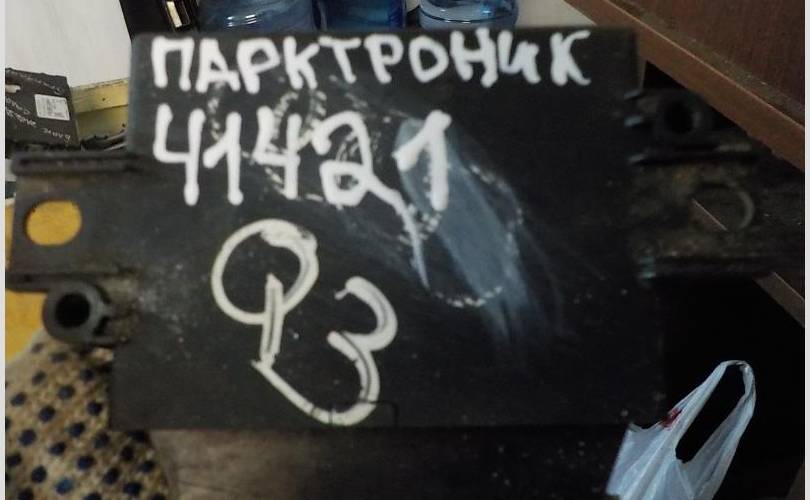 ПАРКТРОНИК
41421